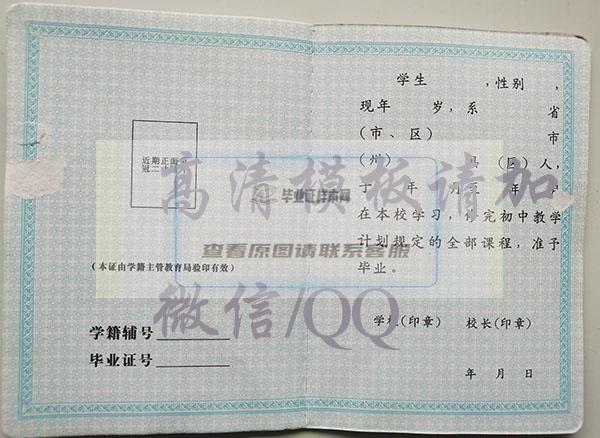 近期正面免
冠二寸
(本证由学籍主管教育局验印有效)
学籍辅号
毕业证号
学生 ,性别 ,
现年 岁,系 省
(市、区) 市
(州) 县(区)人,
于 年 月至 年 月
在本校学习,修完初中教学
计划规定的全部课程,准予
毕业。
学校(印章) 校长(印章)
年 月 日
高清模板请加
毕业证样本网
查看原图请联系客服
微信/QQ